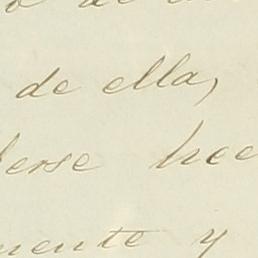 de ella,
erse hec
mente y